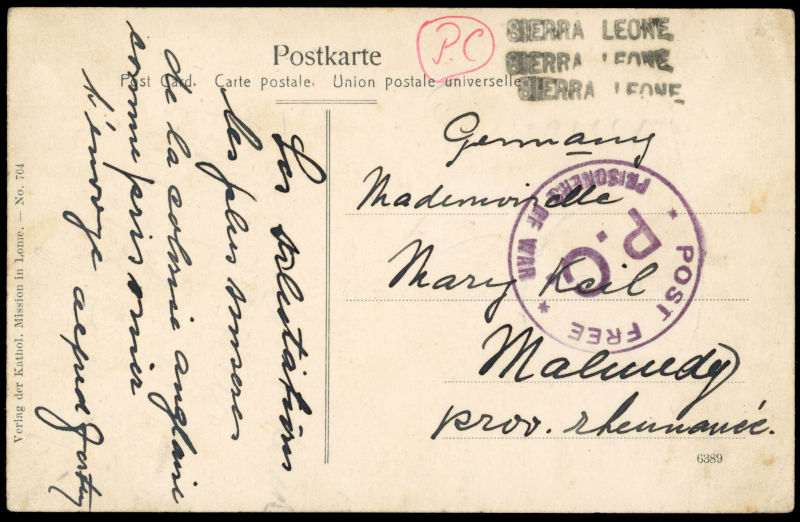 Postkarte
Post Card. Carte postale. Union postale universelle
P.C
SIERRA LEONE
SIERRA LEONE
SIERRA LEONE
Germany
Mademoiselle
Mary Keil
Malmedy
prov. rhennanée.
POST FREE
PRISONERS OF WAR
P.C.
Les salutations
les plus sinceres
de la colonie anglaise
comme prisonier
t'envoye
Verlag der Kathol. Mission in Lome. — No. 704
6389